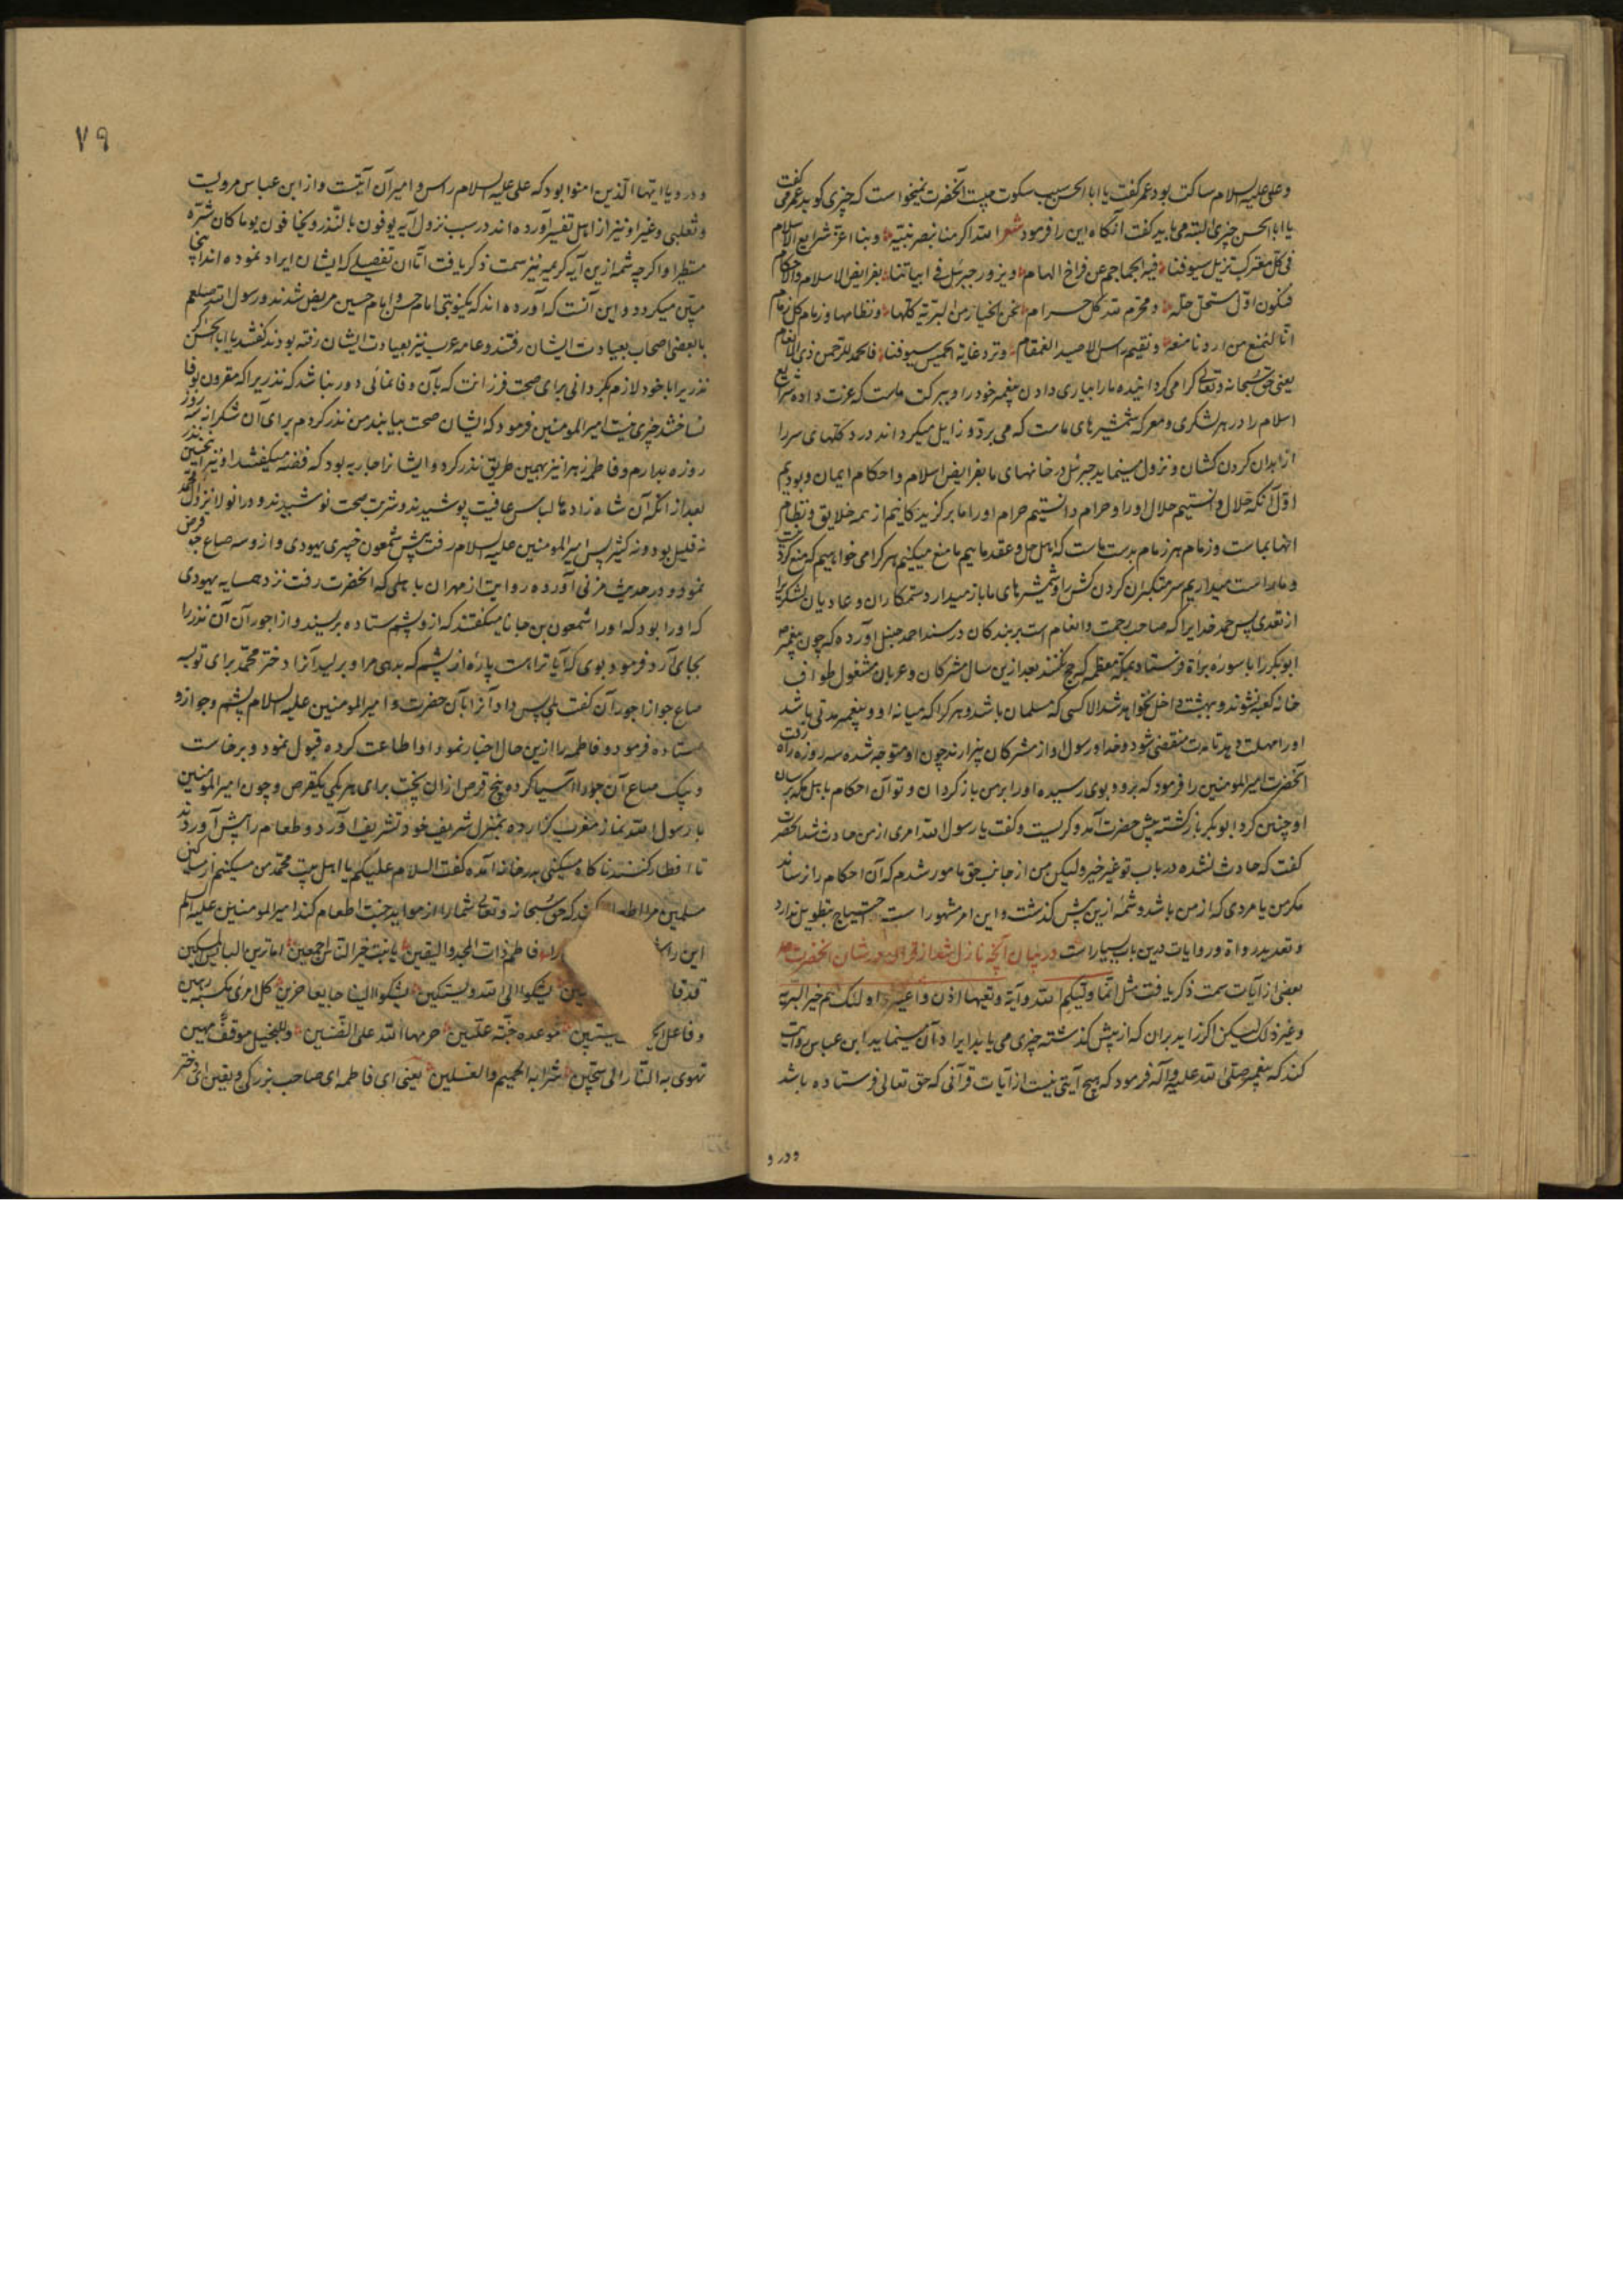 وعلی علیه السلام ساکت بود عمر گفت یا ابا الحسن سبب سکوت چیست آنحضرت نمیخواست که چیزی گوید عمر می گفت
یا ابا الحسن چیزی البته می باید گفت آنگاه این را فرمود شعر الله اکرمنا بنصر نبیه وبنا اعز شرایع الاسلام
فی کل معترک تزیل سیوفنا فیه الجماجم عن فراخ الهام ویزور جبرئیل فی ابیاتنا بفرایض الاسلام والاحکام
فنکون اول مستحل حله ومحرم لله کل حرام نحن الخیار من البریة کلها ونظامها وزمام کل زمام
انا لنمنع من اردنا منعه ونقیم راس الاصید القمقام وترد غایة الخمیس سیوفنا فالحمد للرحمن ذی الانعام
یعنی حق سبحانه وتعالی گرامی گردانیده ما را بیاری دادن پیغمبر خود را وببرکت ماست که عزت داده شرایع
اسلام را در هر لشکری ومعرکه شمشیرهای ماست که می برد وزایل میگرداند در کلهای سر را
از ابدان گردن کشان ونزول مینماید جبرئیل در خانهای ما بفرایض اسلام واحکام ایمان وبودیم
اول آنکه حلال دانستیم حلال او را وحرام دانستیم حرام او را ما برگزیدگانیم از همه خلایق ونظام
انها بماست وزمام هر زمام بدست ماست که اهل حل وعقد ماییم ما منع میکنیم هر کرا می خواهیم که منع کرد
وما راست میداریم سر متکبران گردن کش را وشمشیرهای ما باز میدارد ستمکاران وعادیان لشکر را
از تعدی پس حمد خدایرا که صاحب رحمت وانعام است بر بندگان در مسند احمد حنبل آورده که چون پیغمبر
ابوبکر را با سوره براة فرستاد بمکه معظمه که حج نکنند بعد ازین سال مشرکان وعریان مشغول طواف
خانه کعبه نشوند وبهشت داخل نخواهد شد الا کسی که مسلمان باشد وهر کرا که میانه او وپیغمبر مدتی باشد
او را مهلت دهد تا مدت منقضی شود وخدا ورسول او از مشرکان بیزارند چون او متوجه شده سه روزه راه رفت
آنحضرت امیر المومنین را فرمود که برو وبوی رسیده او را بر من باز گردان وتو آن احکام باهل مکه برسان
او چنین کرد ابوبکر باز گشته پیش حضرت آمد وگریست وگفت یا رسول الله امری از من حادث شد آنحضرت
گفت که حادث نشده در باب تو غیر خیر ولیکن من از جانب حق مامور شدم که آن احکام را نرساند
مگر من یا مردی که از من باشد وشمه ازین پیش گذشت واین امر مشهور است احتیاج بتطویل ندارد
وتعدید رواة وروایات درین باب بسیار است در بیان آنچه نازل شد از قران در شان آنحضرت
بعضی از آیات سمت ذکر یافت مثل انما ولیکم الله وآیة وتعیها اذن واعیة واولئک هم خیر البریة
وغیر ذلک لیکن اگر زاید بران که از پیش گذشته چیزی می یابد ایراد آن مینماید ابن عباس روایت
کند که پیغمبر صلی الله علیه وآله فرمود که هیچ آیتی نیست از آیات قرآنی که حق تعالی فرستاده باشد
ودرو
۷۹
ودرو یا ایها الذین امنوا بود که علی علیه السلام راس وامیر آن آیتست واز ابن عباس مرویست
وثعلبی وغیر او نیز از اهل تفسیر آورده اند در سبب نزول آیه یوفون بالنذر ویخافون یوما کان شره
مستطیرا واگرچه شمه ازین آیه کریمه نیز سمت ذکر یافت اما آن تفصیلی که ایشان ایراد نموده اند اینجا
مبین میگردد واین آنست که آورده اند که یکنوبتی امام حسن وامام حسین مریض شدند ورسول الله صلعم
با بعضی اصحاب بعیادت ایشان رفتند وعامه عرب نیز بعیادت ایشان رفته بودند گفتند یا ابا الحسن اگر
نذریرا با خود لازم بگردانی برای صحت فرزانت که بآن وفا نمائی دور نباشد که نذریرا که مقرون بوفا
نساخشد چیزی نیست امیر المومنین فرمود که ایشان صحت بیابند من نذر کردم برای آن شکرانه سه روز
روزه بدارم وفاطمه زهرا نیز بهمین طریق نذر کرد وایشانرا جاریه بود که فضه میگفتند او نیز همچنین نذر
بعد از آنکه آن شاه زادها لباس عافیت پوشیدند وشربت صحت نوشیدند ودر آنولا نزد آل محمد
نه قلیل بود ونه کثیر پس امیر المومنین علیه السلام رفت پیش شمعون خیبری یهودی وازو سه صاع جو قرض
نمود ودر حدیث مزنی آورده روایت از مهران باهلی که آنحضرت رفت نزد همسایه یهودی
که او را بود که او را شمعون بن حانا میگفتند که ازو پشم ستاده بریسند واز اجور آن آن نذر را
بجای آرد فرمود بوی که آیا ترا هست پارهٔ از پشم که بدهی مرا وبریسد آنرا دختر محمد برای تو بسه
صاع جو از اجور آن گفت بلی پس داد آنرا بآن حضرت وامیر المومنین علیه السلام پشم وجو ازو
ستاده فرمود وفاطمه را ازین حال اخبار نمود او اطاعت کرده قبول نمود وبرخاست
ویک صاع آن جو را آسیا کرد وپنج قرص از آن پخت برای هر یکی یکقرص وچون امیر المومنین
با رسول الله نماز مغرب گزارده بمنزل شریف خود تشریف آورد وطعام را پیش آوردند
تا افطار کنند ناگاه مسکینی بدر خانه آمده گفت السلام علیکم یا اهل بیت محمد من مسکینم از مساکین
مسلمین مرا اطعام کنند که حق سبحانه وتعالی شما را از مواید جنت اطعام کند امیر المومنین علیه السلم
این را فاطم ذات المجد والیقین یا بنت خیر الناس اجمعین اما ترین البایس المسکین
قد قا یشکوا الی الله ویستکین یشکوا الینا جایعا حزین کل امرئ بکسبه رهین
وفاعل الخ یستبین موعده جنة علیین حرمها الله علی الضنین وللبخیل موقف مهین
تهوی به النار الی سجین شرابه الحمیم والغسلین یعنی ای فاطمه ای صاحب بزرگی ویقین ای دختر